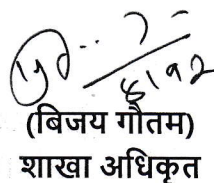 (बिजय गौतम)
शाखा अधिकृत